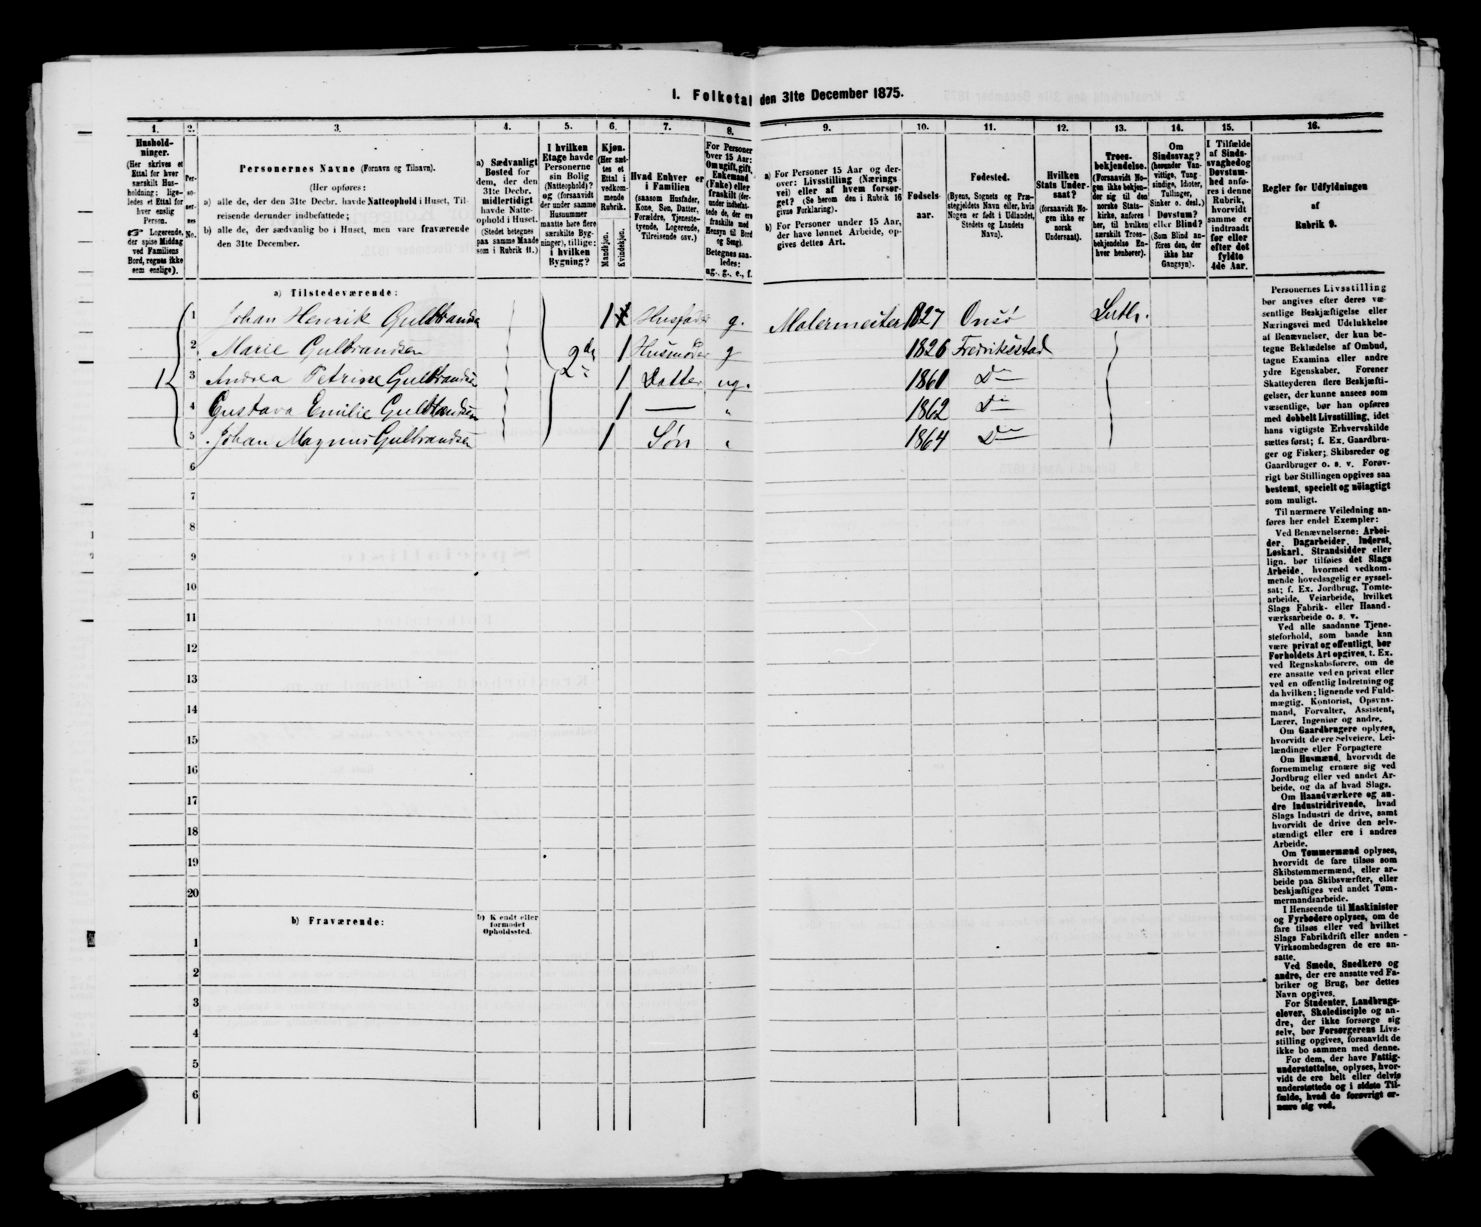 I. Folketal den 31te December 1875.
1. 2. 3. 4. 5. 6. 7. 8. 9. 10. 11. 12. 13. 14. 15. 16.
Hushold-
ninger.
(Her skrives et
Ettal for hver
særskilt Hus-
holdning; lige-
ledes et Ettal for
hver enslig
Person.
☞ Logerende,
der spise Middag
ved Familiens
Bord, regnes ikke
som enslige).
Per-
so-
ner-
nes
No.
Personernes Navne (Fornavn og Tilnavn).
(Her opføres:
a) alle de, der den 31te Decbr. havde Natteophold i Huset, Til-
reisende derunder indbefattede;
b) alle de, der sædvanlig bo i Huset, men vare fraværende
den 31te December.
a) Sædvanligt
Bosted for
dem, der den
31te Decbr.
midlertidigt
havde Natte-
ophold i Huset.
(Stedet betegnes
paa samme Maade
som i Rubrik 11.)
I hvilken
Etage havde
Personerne
sin Bolig
(Natteophold)?
og (forsaavidt
der under samme
Husnummer
maatte høre flere
særskilte Byg-
ninger), tillige:
i hvilken
Bygning?
Kjøn.
(Her sæt-
tes et
Ettal i
vedkom-
mende
Rubrik.
Mandkjøn.
Kvindekjøn.
Hvad Enhver er
i Familien
(saasom Husfader,
Kone, Søn, Datter,
Forældre, Tjeneste-
tyende, Logerende,
Tilreisende osv.)
For Personer
over 15 Aar:
Om ugift, gift,
Enkemand
(Enke) eller
fraskilt (der-
under indbefat-
tede de, der ere
fraskilte med
Hensyn til Bord
og Seng).
Betegnes saa-
ledes:
ug., g., e., f.
a) For Personer 15 Aar og der-
over: Livsstilling (Nærings
vei) eller af hvem forsør-
get? (Se herom den i Rubrik 16
givne Forklaring).
b) For Personer under 15 Aar,
der have lønnet Arbeide, op-
gives dettes Art.
Fødsels-
aar.
Fødested.
(Byens, Sognets og Præ-
stegjeldets Navn eller, hvis
Nogen er født i Udlandet,
Stedets og Landets
Navn).
Hvilken
Stats Under-
saat?
(forsaavidt No-
gen ikke er
norsk
Undersaat).
Troes-
bekjendelse.
(Forsaavidt No-
gen ikke bekjen-
der sig til den
norske Stats-
kirke, anføres
her, til hvilken
særskilt Troes-
bekjendelse En-
hver henhører).
Om
Sindssvag?
(herunder Van-
vittige, Tung-
sindige, Idioter,
Tullinger,
Sinker o. desl.)
Døvstum?
eller Blind?
(Som Blind an-
føres den, der
ikke har
Gangsyn).
I Tilfælde
af Sinds-
svaghed og
Døvstum-
hed anfø-
res i denne
Rubrik,
hvorvidt
samme er
indtraadt
før eller
efter det
fyldte
4de Aar.
Regler for Udfyldningen
af
Rubrik 9.
a) Tilstedeværende:
1 Johan Henrik Gulbrandsen 1 Husfader g. Malermester 1827 Onsø Luth.
2 Marie Gulbrandsen 1 Husmoder g 1826 Fredriksstad
1 3 Andrea Petrine Gulbrandsen 1 Datter ug. 1860 Do
4 Gustava Emilie Gulbrandsen 1 — " 1862 Do
5 Johan Magnus Gulbrandsen 1 Søn " 1864 Do
6
7
8
9
10
11
12
13
14
15
16
17
18
19
20
b) Fraværende:
b) Kendt eller
formodet
Opholdssted.
1
2
3
4
5
6
Personernes Livsstilling
bør angives efter deres væ-
sentlige Beskjæftigelse eller
Næringsvei med Udelukkelse
af Benævnelser, der kun be-
tegne Beklædelse af Ombud,
tagne Examina eller andre
ydre Egenskaber. Forener
Skatteyderen flere Beskjæfti-
gelser, der kunne ansees som
væsentlige, bør han opføres
med dobbelt Livsstilling, idet
hans vigtigste Erhvervskilde
sættes først; f. Ex. Gaardbru-
ger og Fisker; Skibsreder og
Gaardbruger o. s. v. Forøv-
rigt bør Stillingen opgives saa
bestemt, specielt og nöiagtigt
som muligt.
Til nærmere Veiledning an-
føres her endel Exempler:
Ved Benævnelserne: Arbei-
der, Dagarbeider, Inderst,
Løskarl, Strandsidder eller
lign. bør tilføies det Slags
Arbeide, hvormed vedkom-
mende hovedsagelig er syssel-
sat; f. Ex. Jordbrug, Tomte-
arbeide, Veiarbeide, hvilket
Slags Fabrik- eller Haand-
værksarbeide o. s. v.
Ved alle saadanne Tjene-
steforhold, som baade kan
være privat og offentligt, bør
Forholdets Art opgives, t. Ex.
ved Regnskabsførere, om de
ere ansatte ved en privat eller
ved en offentlig Indretning og
da hvilken; lignende ved Fuld-
mægtig, Kontorist, Opsyns-
mand, Forvalter, Assistent,
Lærer, Ingeniør og andre.
Om Gaardbrugere oplyses,
hvorvidt de ere Selveiere, Lei-
lændinge eller Forpagtere
Om Husmænd, hvorvidt de
fornemmelig ernære sig ved
Jordbrug eller ved andet Ar-
beide, og da af hvad Slags.
Om Haandværkere og an-
dre Industridrivende, hvad
Slags Industri de drive, samt
hvorvidt de drive den selv-
stændigt eller ere i andres
Arbeide.
Om Tømmermænd oplyses,
hvorvidt de fare tilsøs som
Skibstømmermænd, eller ar-
beide paa Skibsværfter, eller
beskjæftiges ved andet Tøm-
mermandsarbeide.
I Henseende til Maskinister
og Fyrbødere oplyses, om de
fare tilsøs eller ved hvilket
Slags Fabrikdrift eller anden
Virksomhedsgren de ere an-
satte.
Ved Smede, Snedkere og
andre, der ere ansatte ved Fa-
briker og Brug, bør dettes
Navn opgives.
For Studenter, Landbrugs-
elever, Skoledisciple og an-
dre, der ikke forsørge sig
selv, bør Forsørgerens Livs-
stilling opgives, forsaavidt de
ikke bo sammen med denne.
For dem, der have Fattig-
understøttelse, oplyses, hvor-
vidt de ere helt eller delvis
understøttede og i sidste Til-
fælde, hvad de forøvrigt er-
nære sig ved.